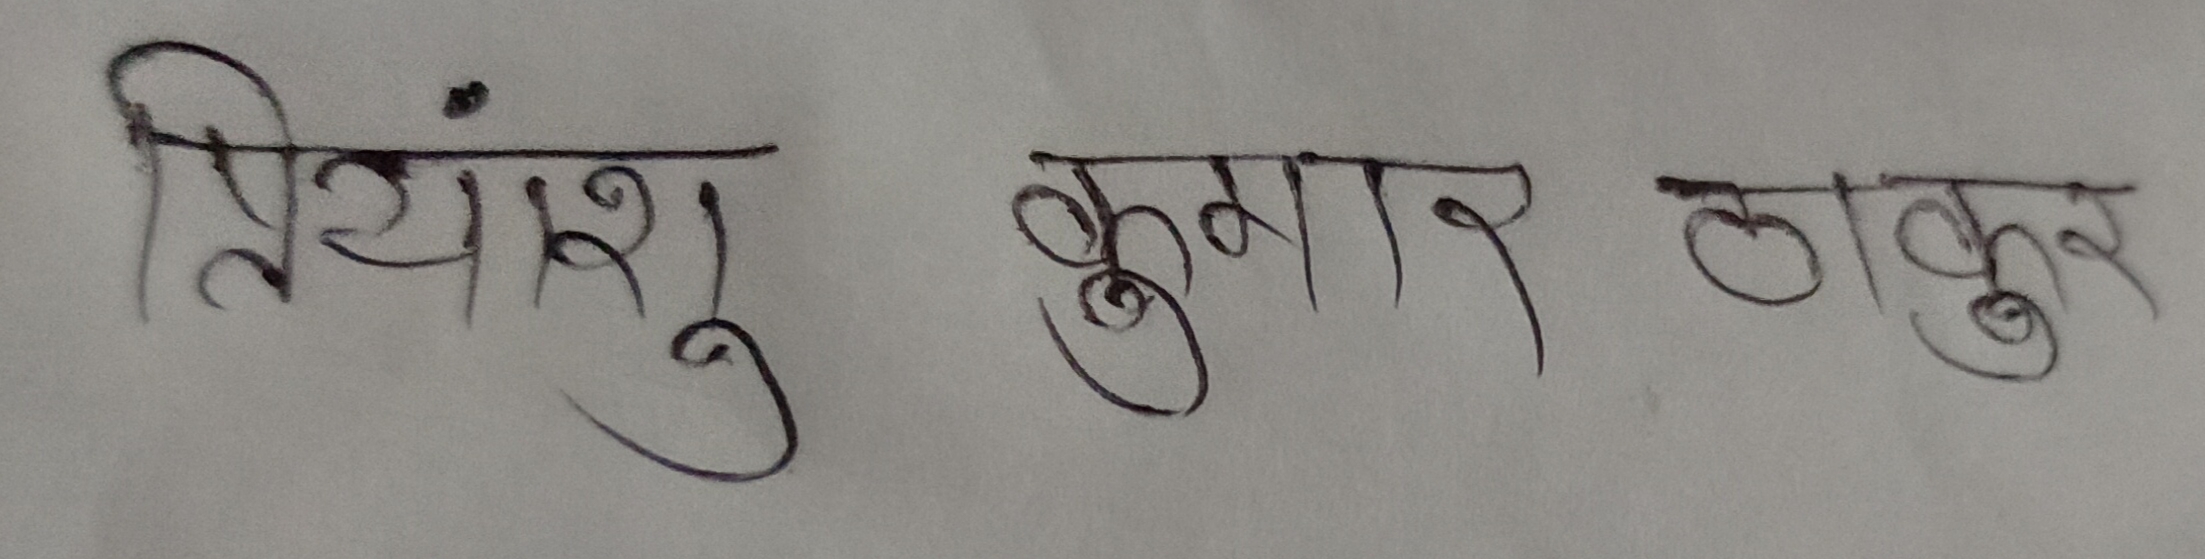 प्रियांशु कुमार ठाकुर